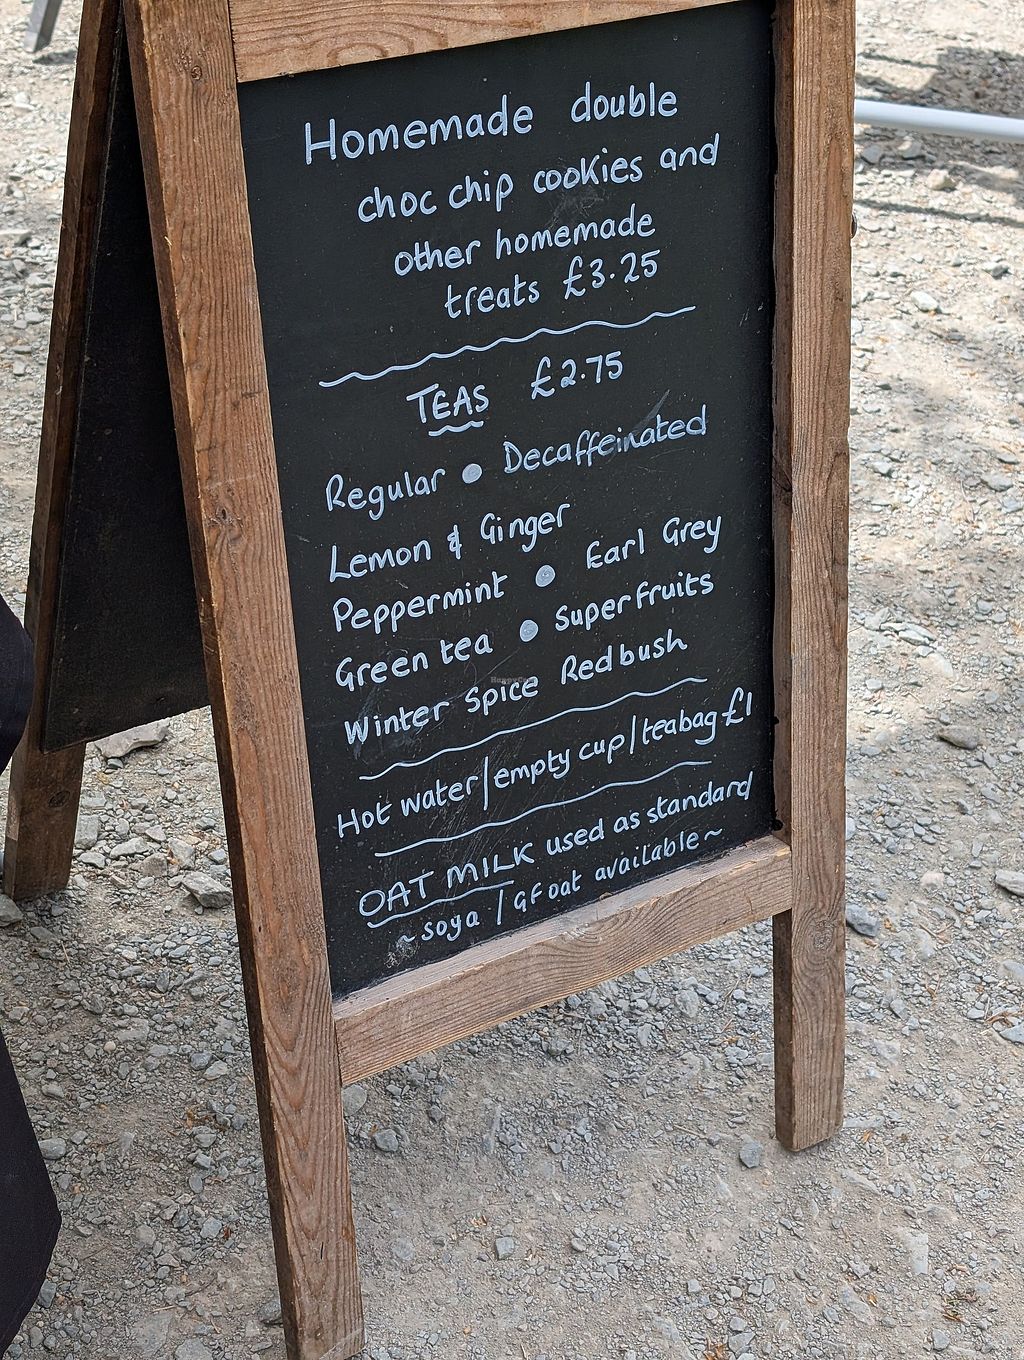 Homemade double
choc chip cookies and
other homemade
treats £3.25
TEAS £2.75
Regular • Decaffeinated
Lemon & Ginger
Peppermint • Earl Grey
Green tea • Superfruits
Winter Spice Redbush
Hot water/empty cup/teabag £1
OAT MILK used as standard
~ soya / GF oat available ~
HappyCow